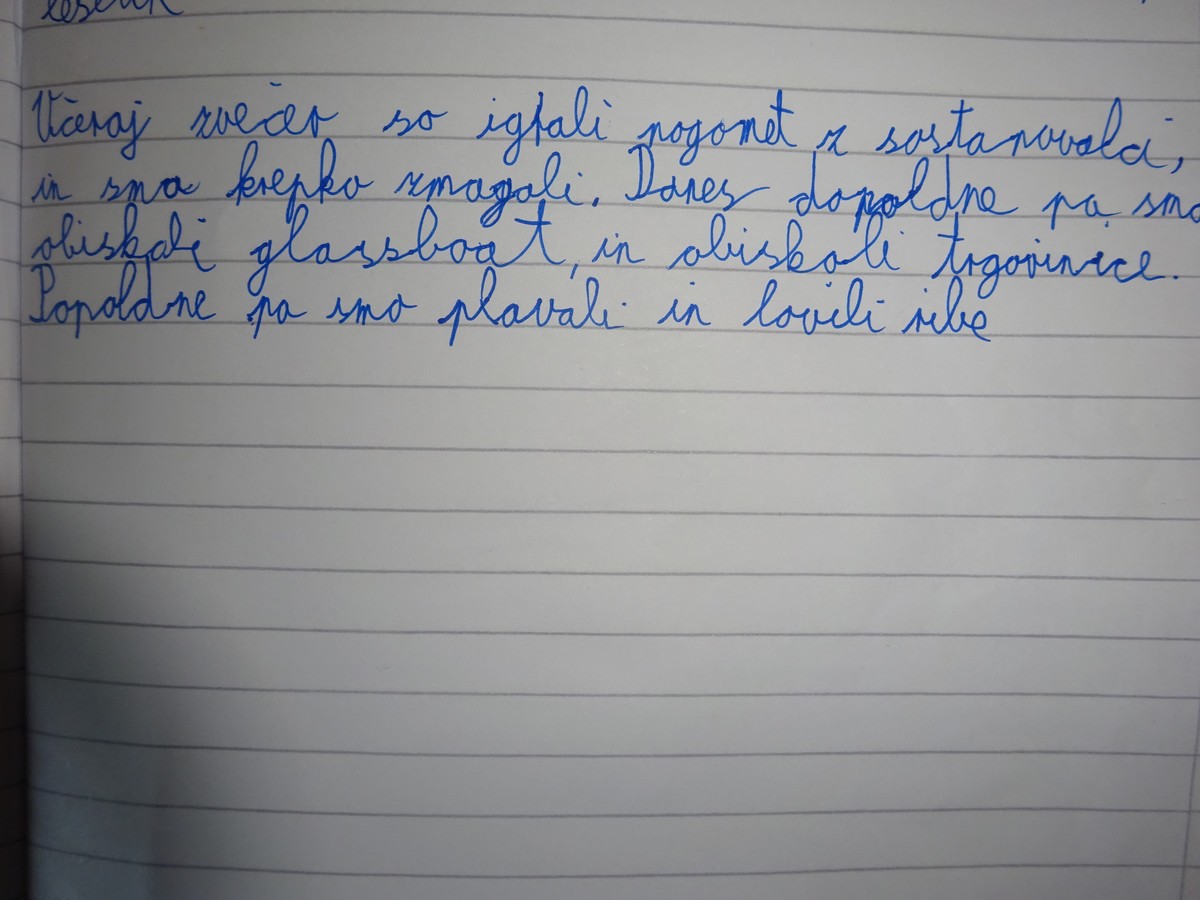 Včeraj zvečer so igrali nogomet z sostanovalci,
in smo krepko zmagali. Danes dopoldne pa smo
obiskali glassboat, in obiskali trgovinice.
Popoldne pa smo plavali in lovili ribe